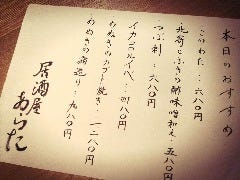 本日のおすすめ
このわた：六八〇円
北寄としぶきの酢味噌和え：五八〇円
つぶ刺：六八〇円
イカゴルイベ：四八〇円
めぬきのカブト焼き：一二八〇円
めぬきの酒造り：九八〇円
居酒屋
あらた